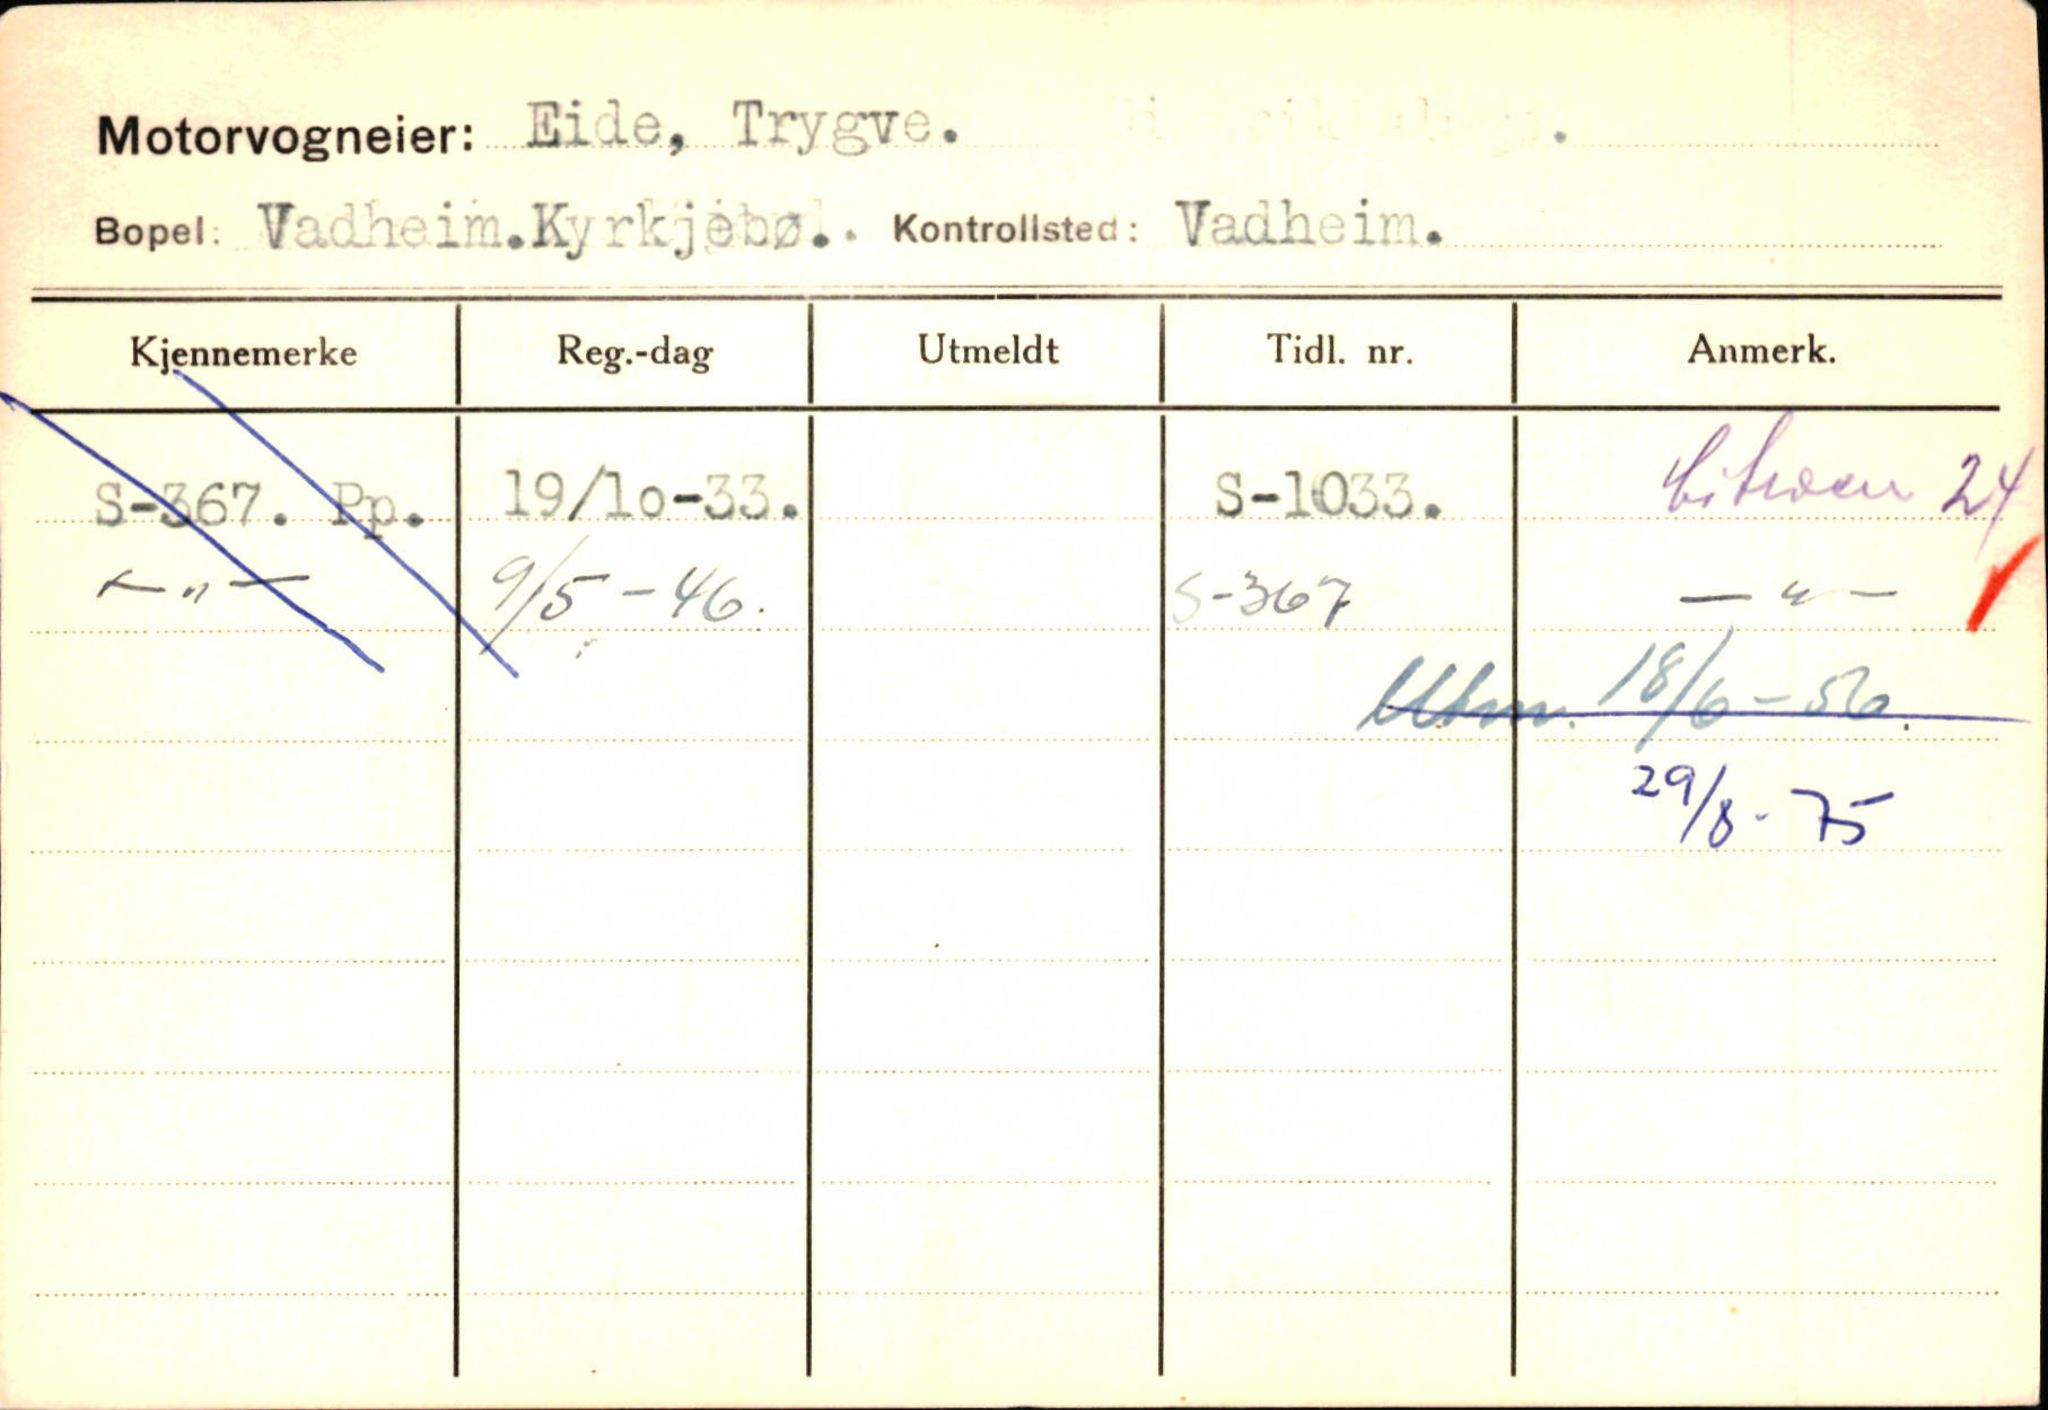 Motorvogneier: Eide, Trygve.
Bopel: Vadheim.Kyrkjebø. Kontrollsted: Vadheim.
Kjennemerke Reg.-dag Utmeldt Tidl. nr. Anmerk.
S-367. Pp. 19/1o-33. S-1033. Citroen 24
— " — 9/5 - 46. S-367 — " —
Utm. 18/6 - 56.
29/8 - 75